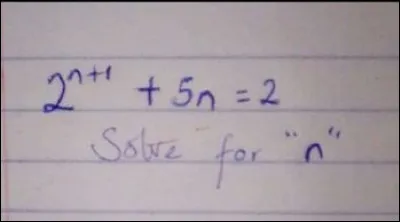 2ⁿ⁺¹ + 5n = 2
Solve for "n"